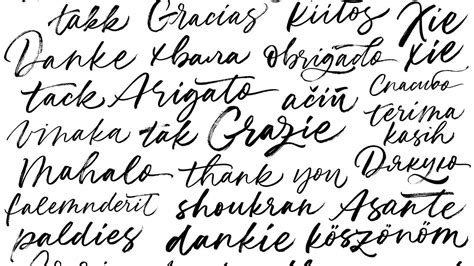 takk Gracias kiitos Xie
Danke хвала obrigado xie
tack Arigato ačiū Спасибо
vinaka tak Grazie terima kasih
Mahalo thank you Дякую
falemnderit shoukran Asante
paldies dankie köszönöm